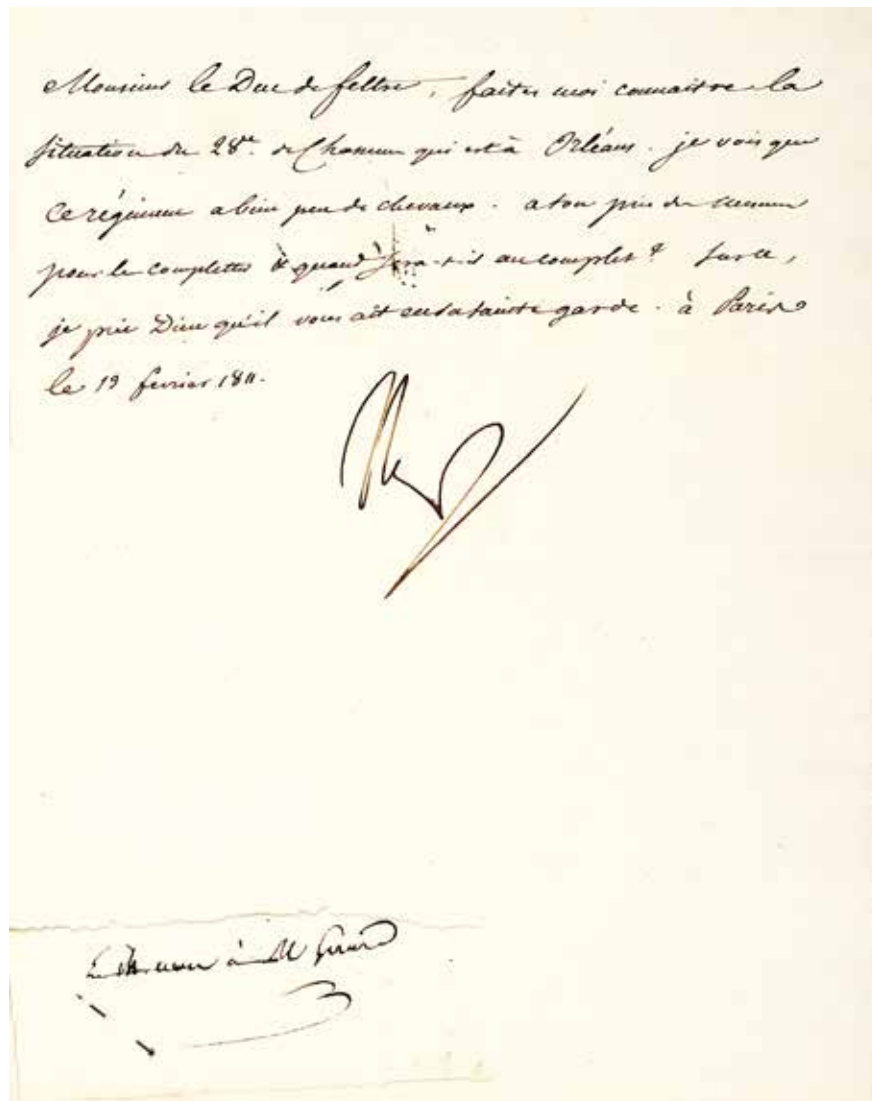 Monsieur le Duc de feltre, faites moi connaitre la
situation du 28e. de Chasseurs qui est à Orléans. je vois que
ce régiment a bien peu de chevaux. a ton pris des mesures
pour le completter & quand sera-t-il au complet? Sur ce,
je prie Dieu qu'il vous ait en sa sainte garde. à Paris
le 19 fevrier 1811.
Np
à M Gérard